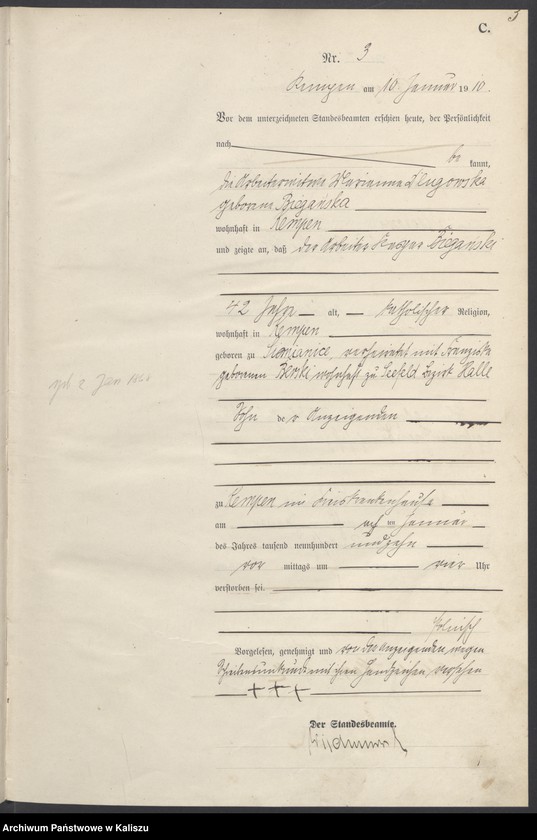 3
C.
Nr. 3
Kempen am 10 Januar 1910.
Vor dem unterzeichneten Standesbeamten erschien heute, der Persönlichkeit
nach
be kannt,
die Arbeiterwitwe Marianna Dlugowska
geborene Biegańska
wohnhaft in Kempen
und zeigte an, daß der Arbeiter Kasper Biegański
42 Jahre alt, katholischer Religion,
wohnhaft in Kempen
geboren zu Siemianice, verheiratet mit Franziska
geborenen wohnhaft zu Seefeld Bezirk Halle
geb 2 Jan 1868
Sohn der Anzeigenden
zu Kempen im Kreiskrankenhause
am acht ten Januar
des Jahres tausend neunhundert und zehn
vor mittags um vier Uhr
verstorben sei.
polnisch
Vorgelesen, genehmigt und von der Anzeigenden wegen
Schreibensunkunde mit ihrem Handzeichen versehen
+ + +
Der Standesbeamte.
Archiwum Państwowe w Kaliszu